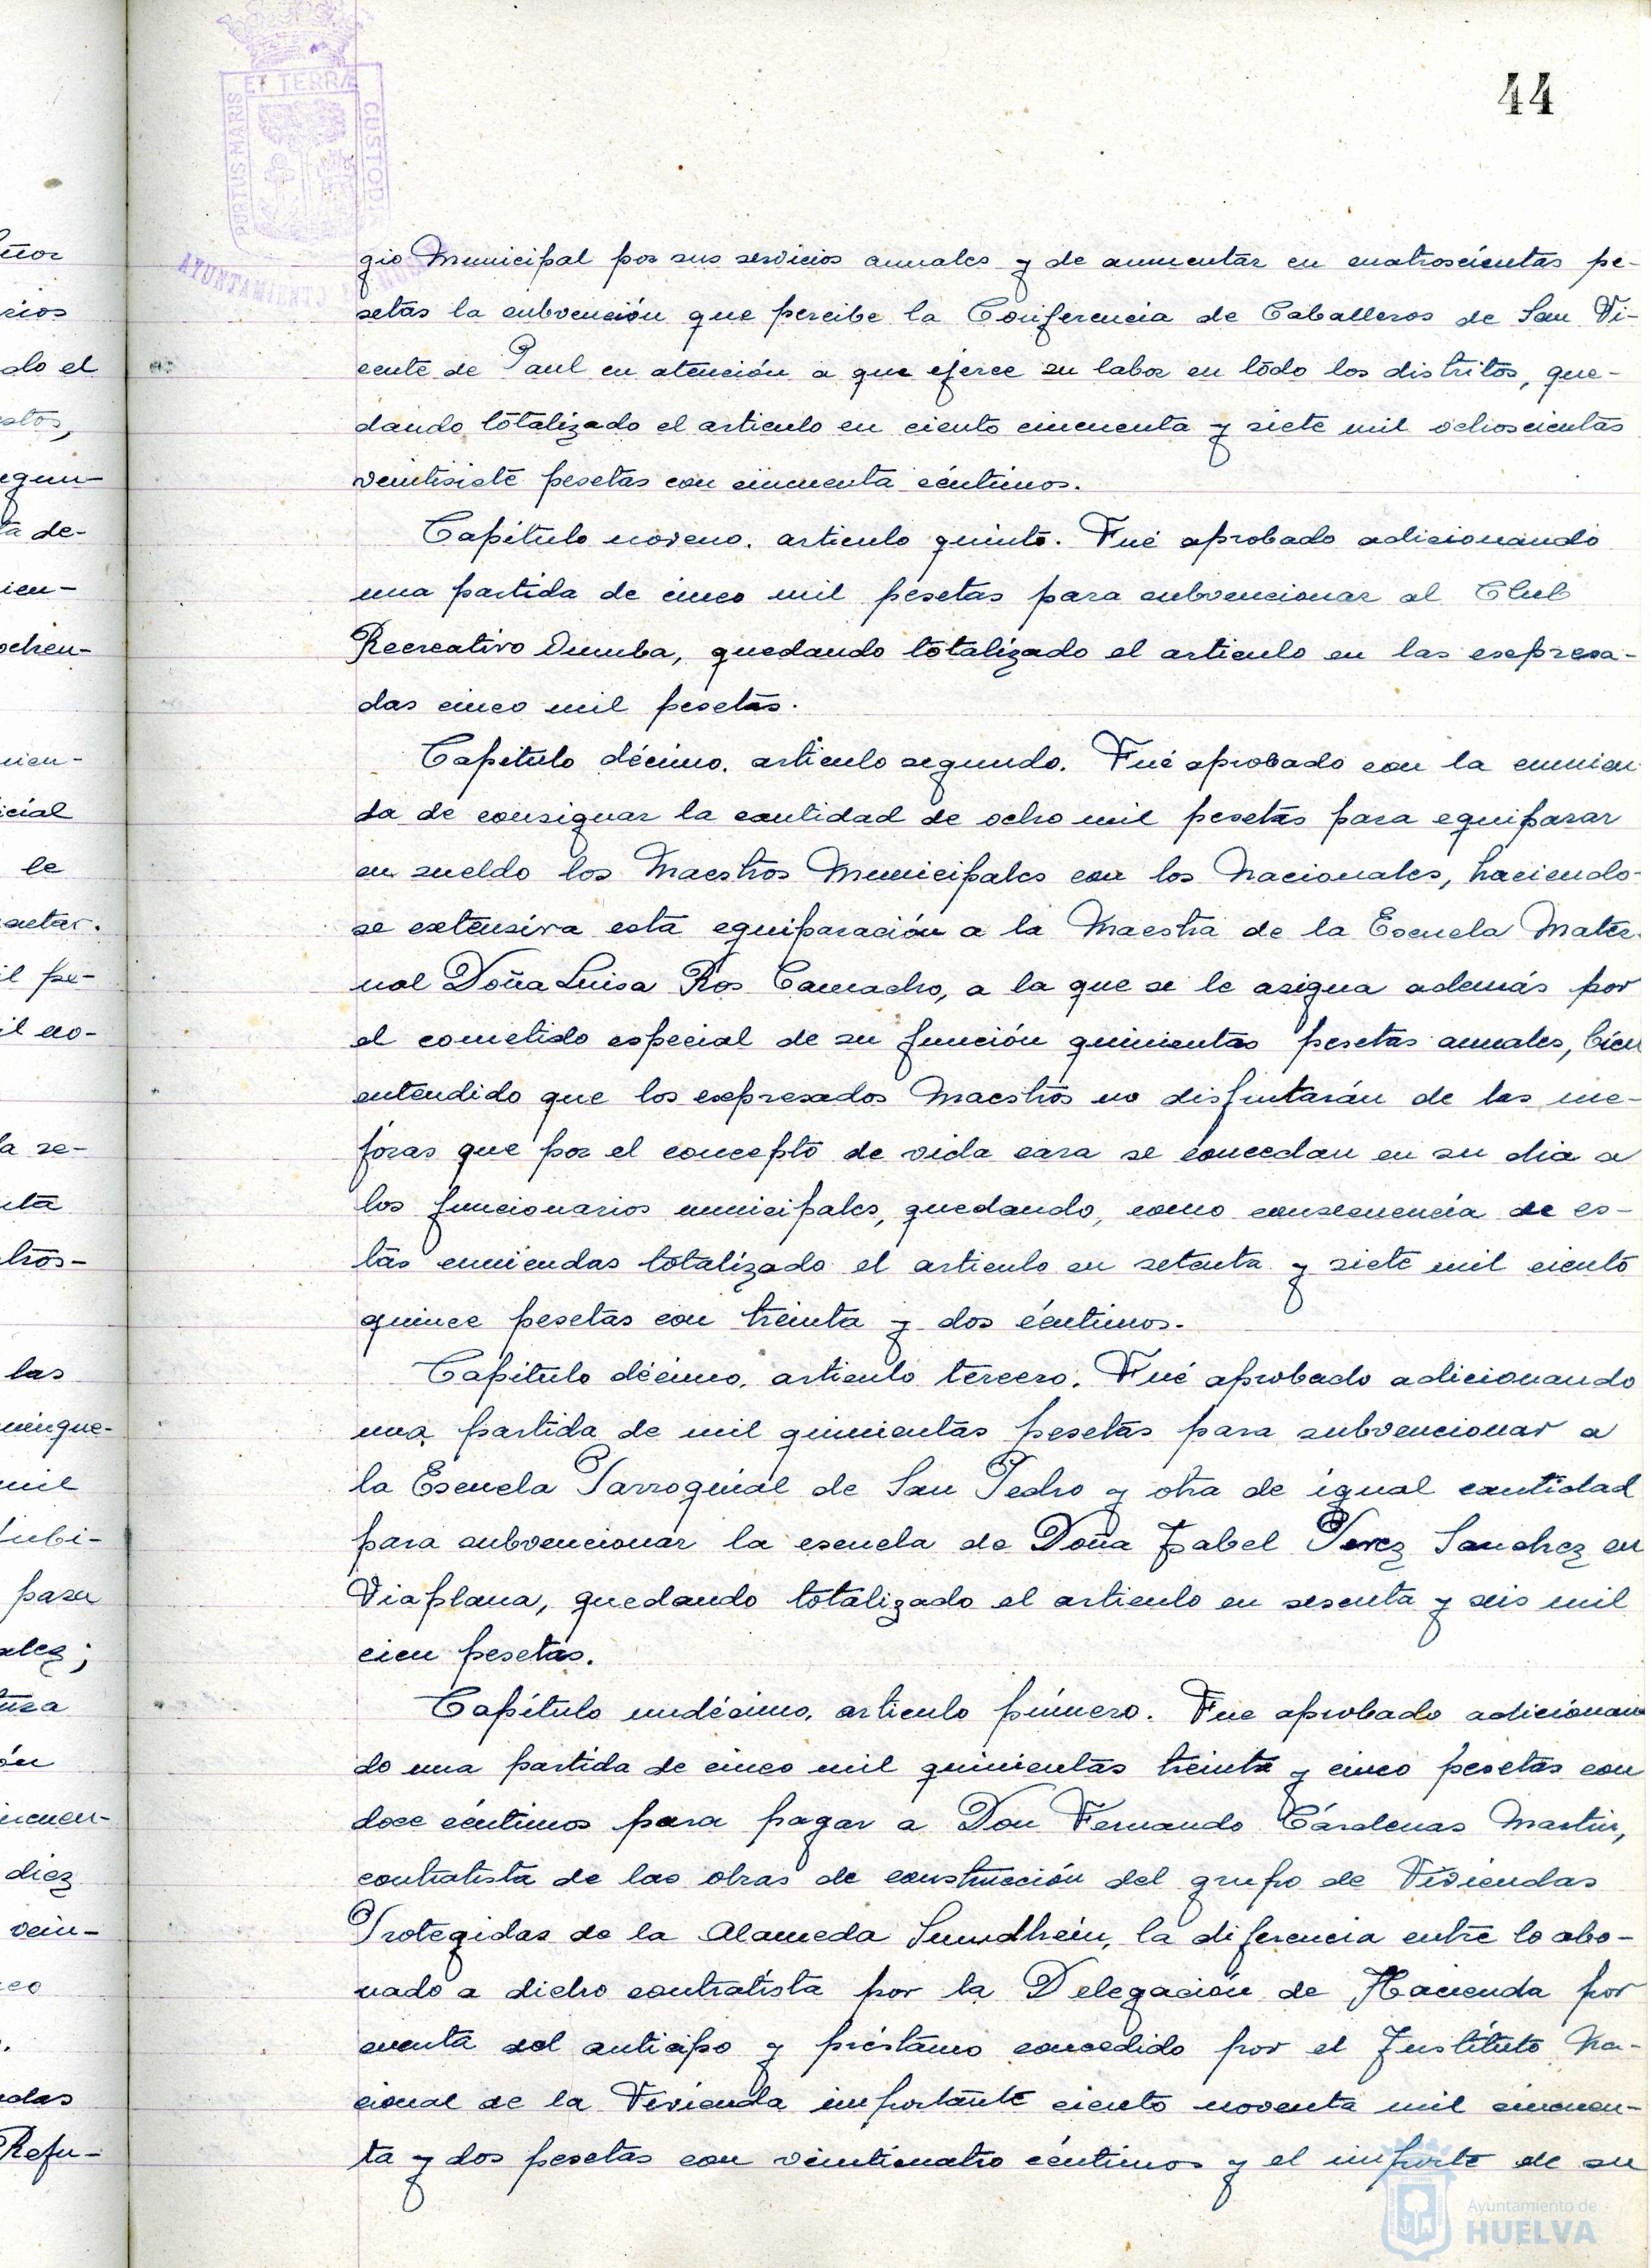 44
PORTUS MARIS ET TERRÆ CUSTODIA
AYUNTAMIENTO
gio Municipal por sus servicios anuales y de aumentar en cuatroscientas pe-
setas la subvención que percibe la Conferencia de Caballeros de San Vi-
cente de Paul en atención a que ejerce su labor en todo los distritos, que-
dando totalizado el articulo en ciento cincuenta y siete mil ochoscientas
veintisiete pesetas con cincuenta céntimos.
Capítulo noveno. articulo quinto. Fué aprobado adicionando
una partida de cinco mil pesetas para subvencionar al Club
Recreativo Onuba, quedando totalizado el articulo en las expresa-
das cinco mil pesetas.
Capítulo décimo. articulo segundo. Fué aprobado con la enmien-
da de consignar la cantidad de ocho mil pesetas para equiparar
en sueldo los Maestros Municipales con los Nacionales, haciendo-
se extensiva esta equiparación a la Maestra de la Escuela Mater-
nal Doña Luisa Ros Camacho, a la que se le asigna además por
el cometido especial de su función quinientas pesetas anuales, bien
entendido que los expresados Maestros no disfrutarán de las me-
joras que por el concepto de vida cara se concedan en su dia a
los funcionarios municipales, quedando, como consecuencia de es-
tas enmiendas totalizado el articulo en setenta y siete mil ciento
quince pesetas con treinta y dos céntimos.
Capítulo décimo. articulo tercero. Fué aprobado adicionando
una partida de mil quinientas pesetas para subvencionar a
la Escuela Parroquial de San Pedro y otra de igual cantidad
para subvencionar la escuela de Doña Isabel Perez Sanchez en
Viaplana, quedando totalizado el articulo en sesenta y seis mil
cien pesetas.
Capítulo undécimo, articulo primero. Fue aprobado adicionan
do una partida de cinco mil quinientas treinta y cinco pesetas con
doce céntimos para pagar a Don Fernando Cárdenas Martin,
contratista de las obras de construcción del grupo de Viviendas
Protegidas de la Alameda Sundhein, la diferencia entre lo abo-
nado a dicho contratista por la Delegación de Hacienda por
cuenta del anticipo y préstamo concedido por el Instituto Na-
cional de la Vivienda importante ciento noventa mil cincuen-
ta y dos pesetas con veinticuatro céntimos y el importe de su
Ayuntamiento de
HUELVA